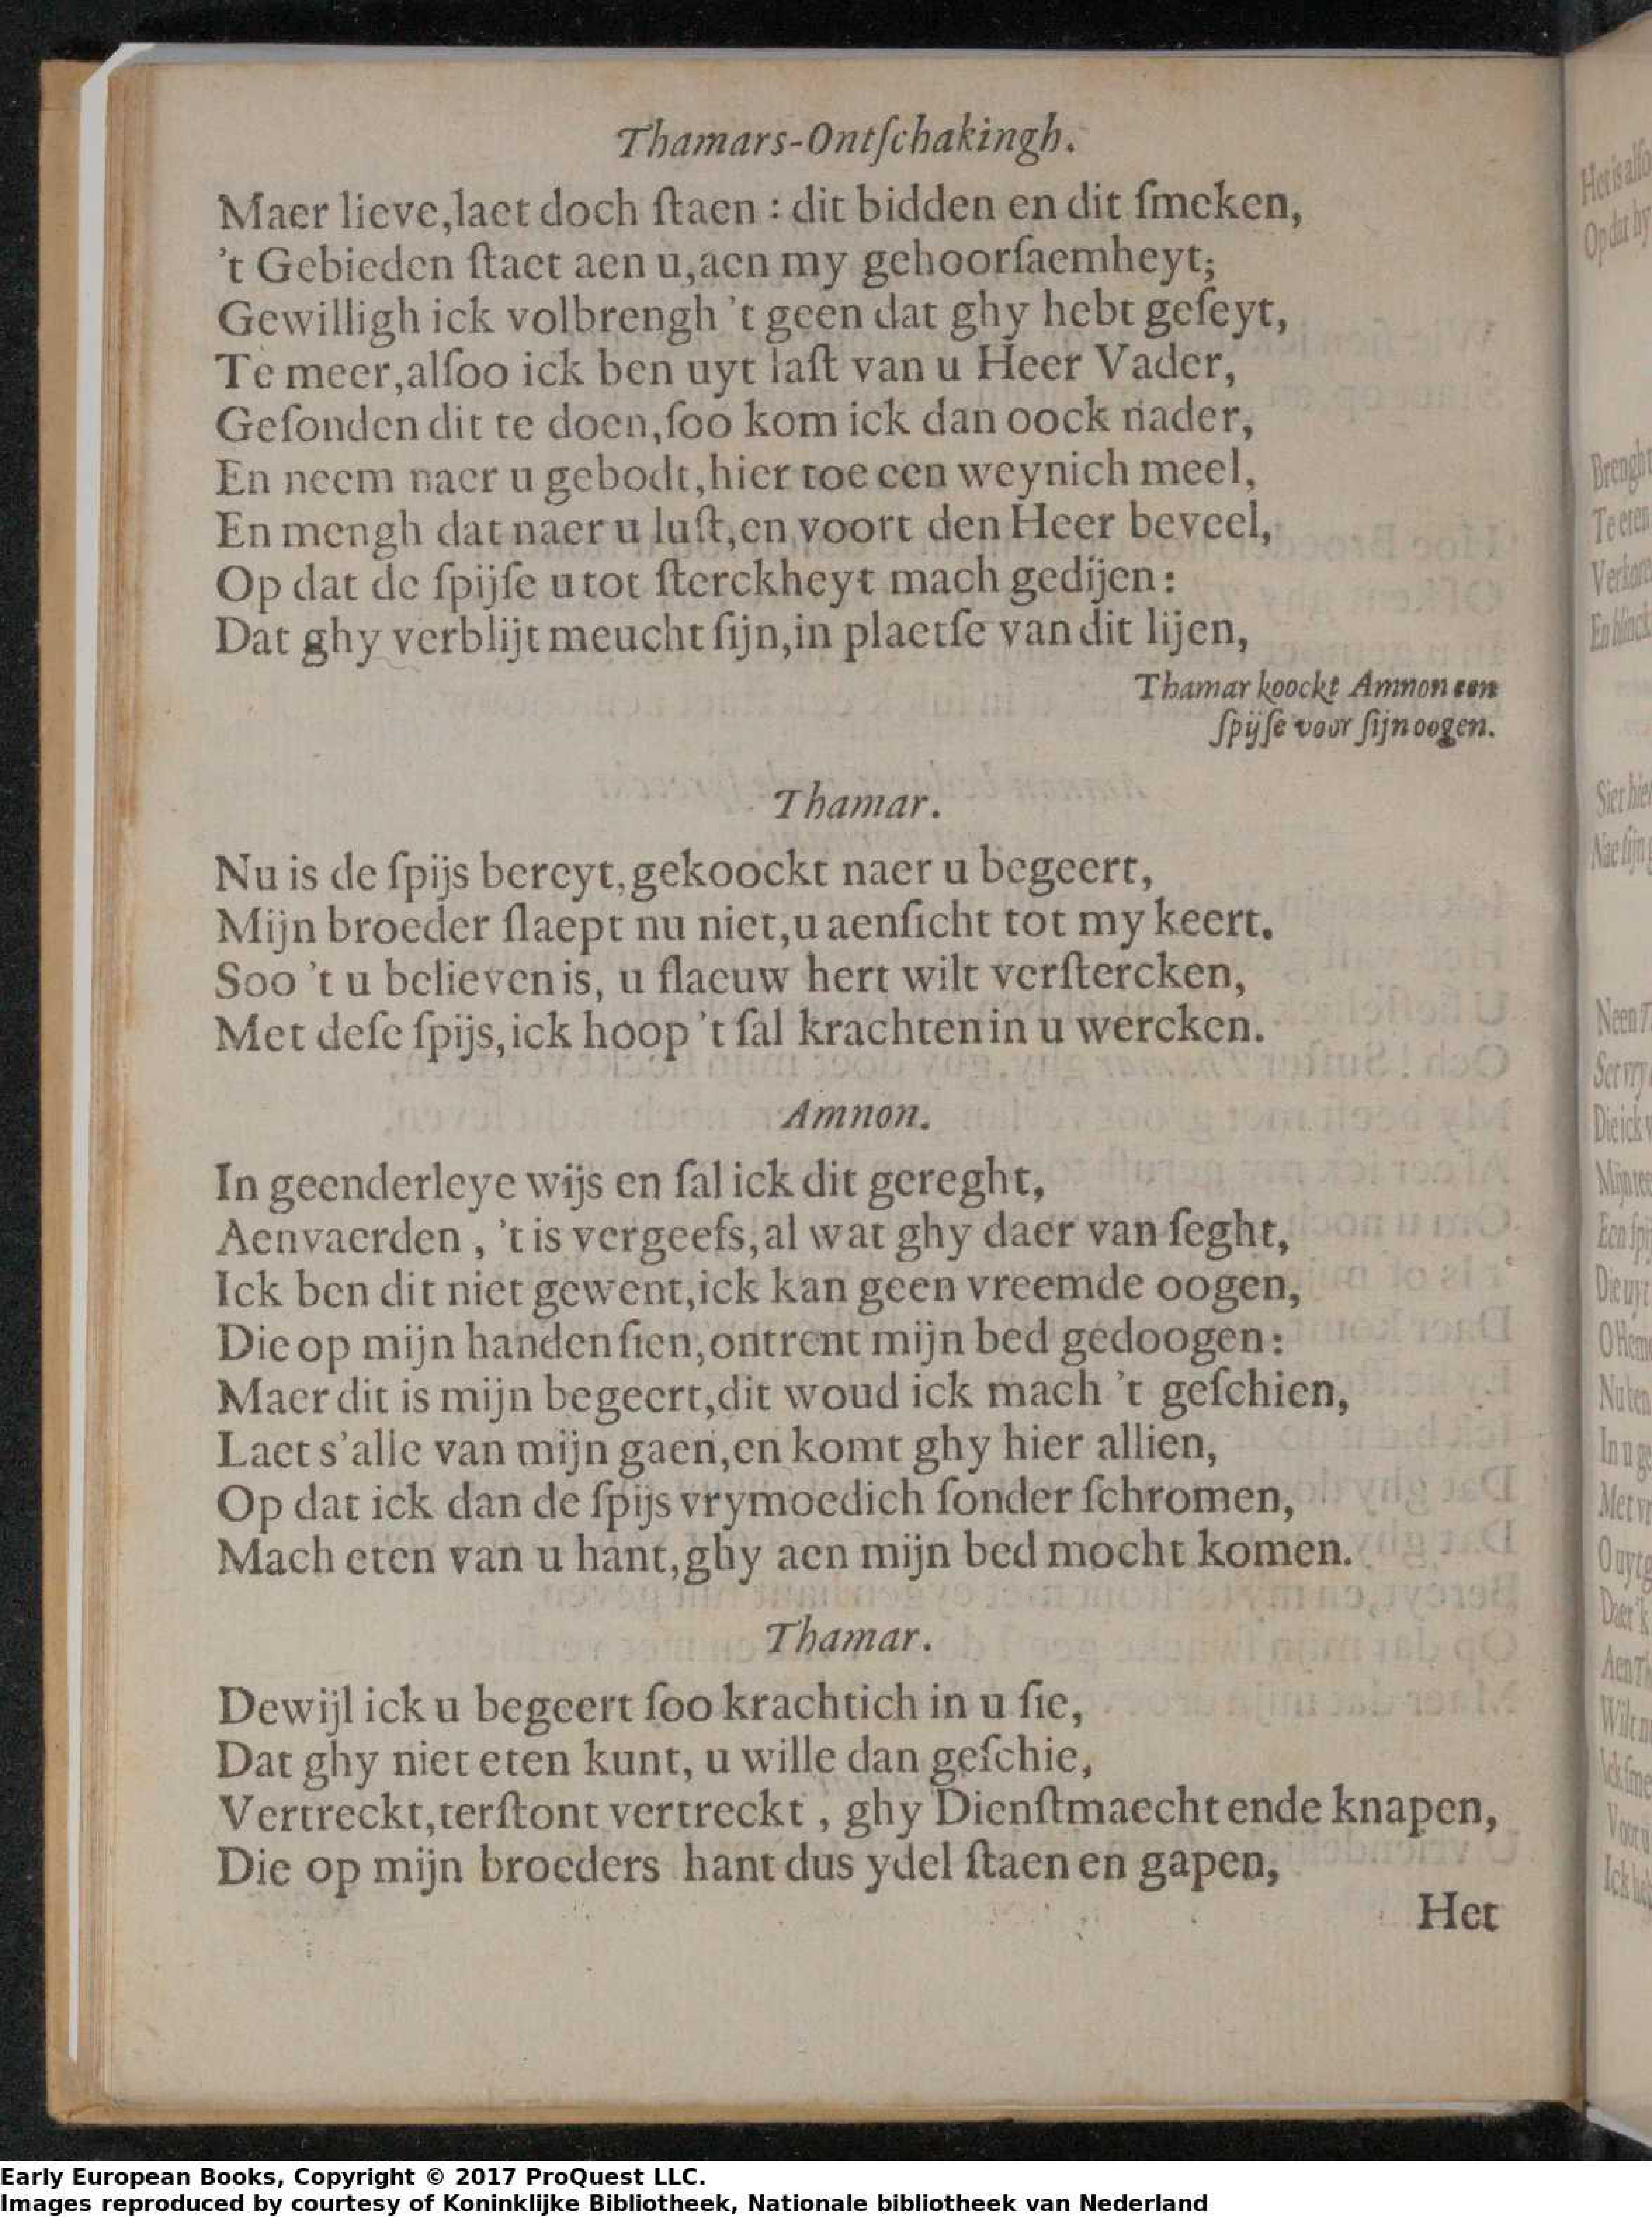 Thamars-Ontſchakingh.
Maer lieve, laet doch ſtaen : dit bidden en dit ſmeken,
't Gebieden ſtaet aen u, aen my gehoorſaemheyt;
Gewilligh ick volbrengh 't geen dat ghy hebt geſeyt,
Te meer, alſoo ick ben uyt laſt van u Heer Vader,
Geſonden dit te doen, ſoo kom ick dan oock nader,
En neem naer u gebodt, hier toe een weynich meel,
En mengh dat naer u luſt, en voort den Heer beveel,
Op dat de ſpijſe u tot ſterckheyt mach gedijen:
Dat ghy verblijt meucht ſijn, in plaetſe van dit lijen,
Thamar koockt Amnon een
ſpijſe voor ſijn oogen.
Thamar.
Nu is de ſpijs bereyt, gekoockt naer u begeert,
Mijn broeder ſlaept nu niet, u aenſicht tot my keert.
Soo 't u believen is, u flaeuw hert wilt verſtercken,
Met deſe ſpijs, ick hoop 't ſal krachten in u wercken.
Amnon.
In geenderleye wijs en ſal ick dit gereght,
Aenvaerden, 't is vergeefs, al wat ghy daer van ſeght,
Ick ben dit niet gewent, ick kan geen vreemde oogen,
Die op mijn handen ſien, ontrent mijn bed gedoogen:
Maer dit is mijn begeert, dit woud ick mach 't geſchien,
Laet s'alle van mijn gaen, en komt ghy hier allien,
Op dat ick dan de ſpijs vrymoedich ſonder ſchromen,
Mach eten van u hant, ghy aen mijn bed mocht komen.
Thamar.
Dewijl ick u begeert ſoo krachtich in u ſie,
Dat ghy niet eten kunt, u wille dan geſchie,
Vertreckt, terſtont vertreckt, ghy Dienſtmaecht ende knapen,
Die op mijn broeders hant dus ydel ſtaen en gapen,
Het
Early European Books, Copyright © 2017 ProQuest LLC.
Images reproduced by courtesy of Koninklijke Bibliotheek, Nationale bibliotheek van Nederland